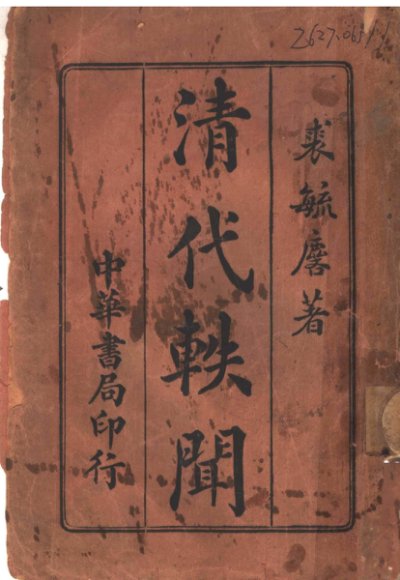 裘毓麐著
清代軼聞
中華書局印行